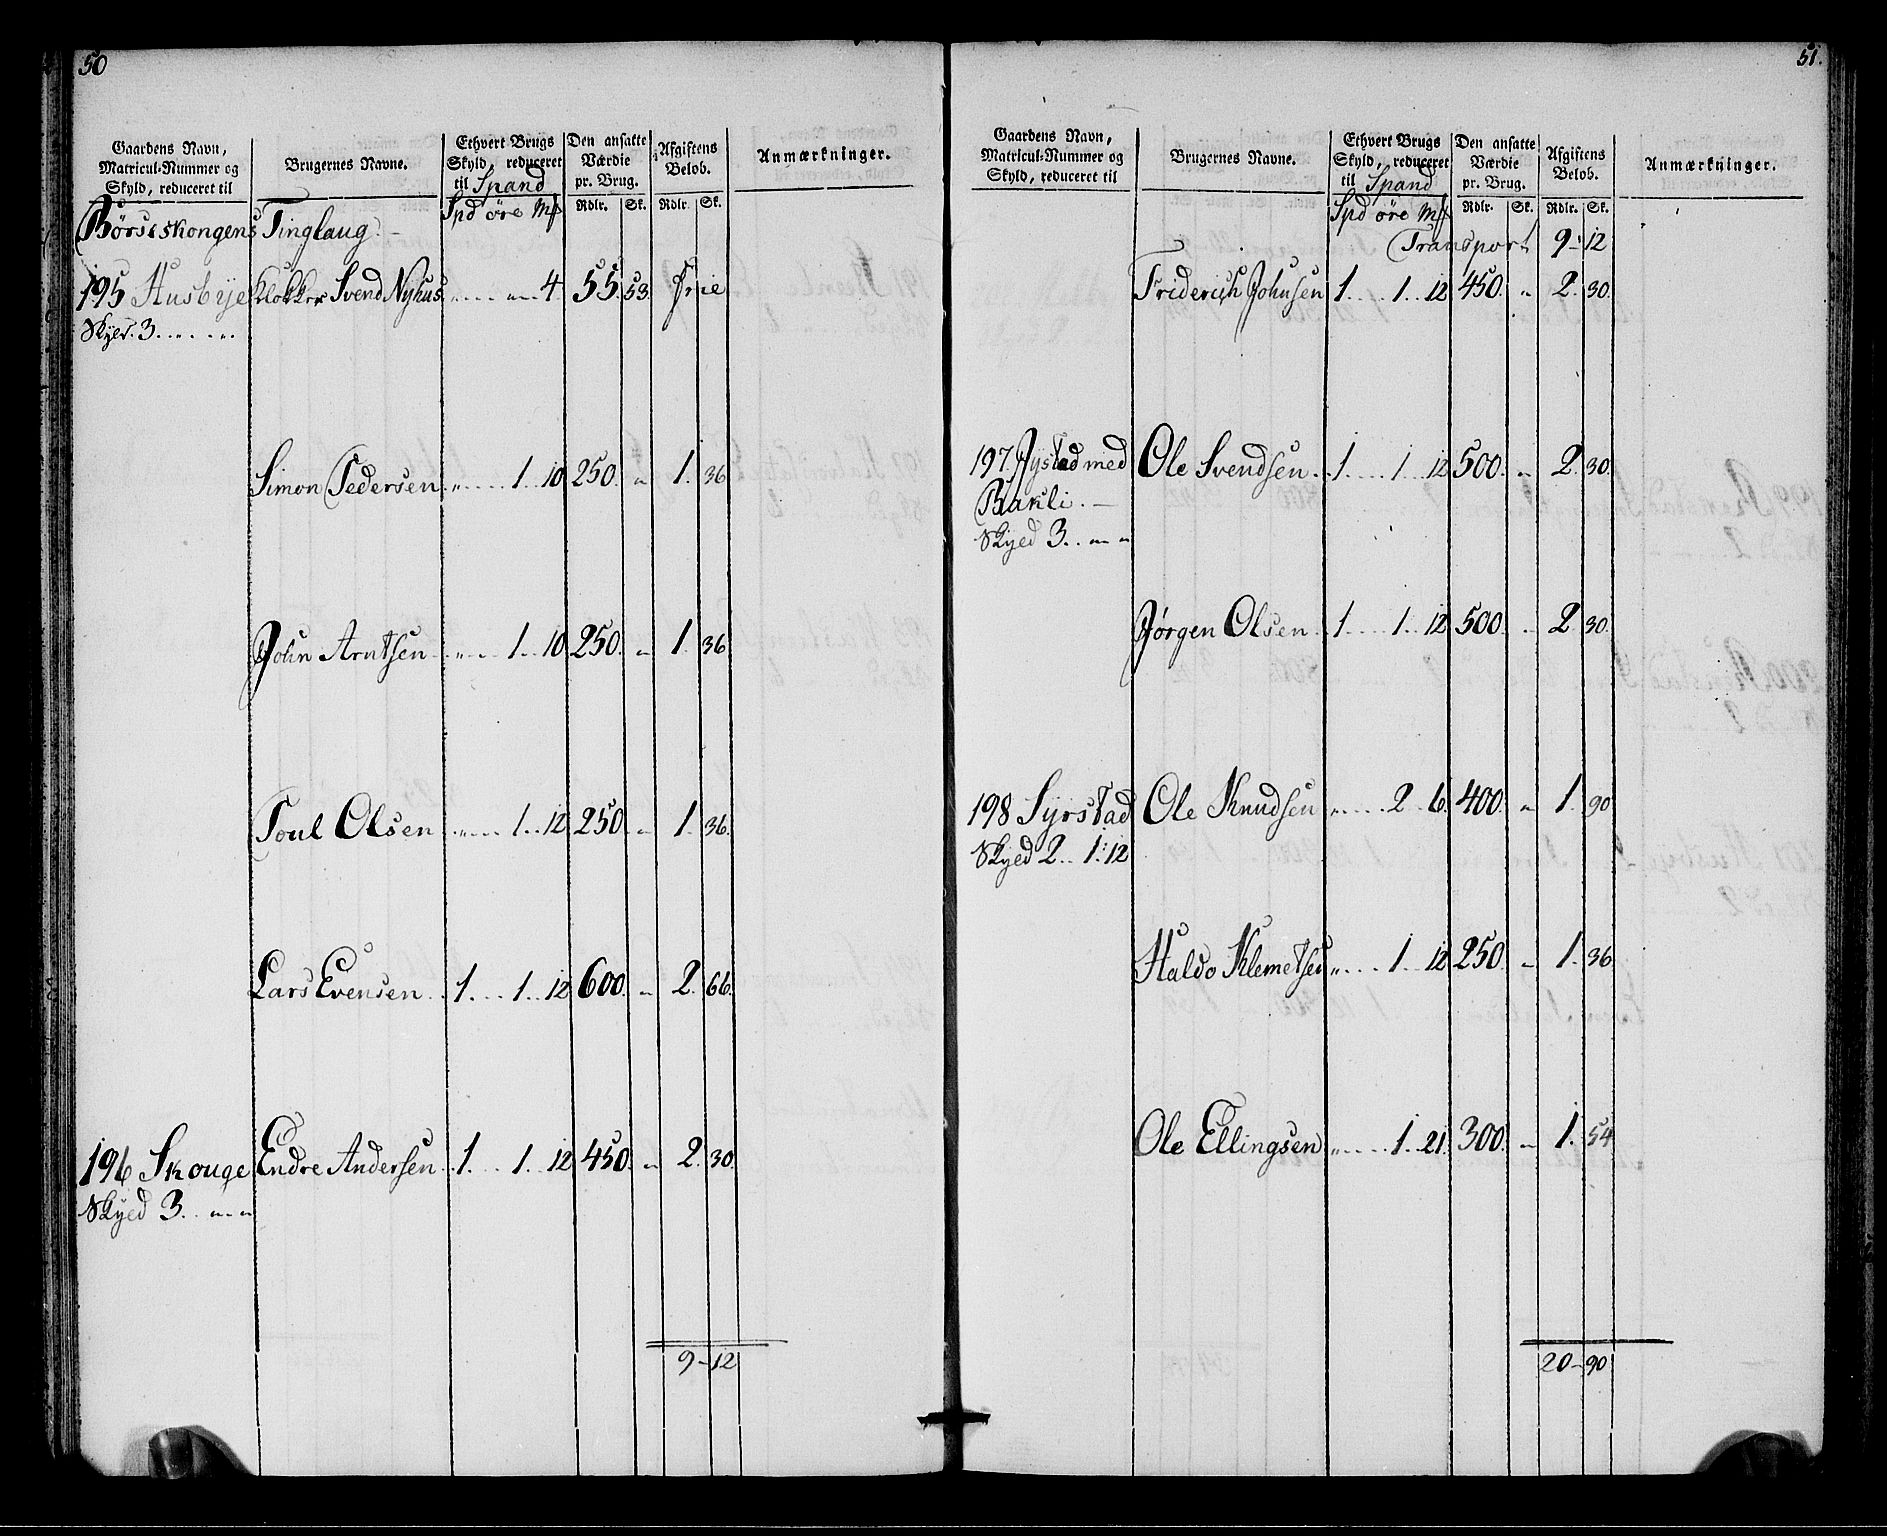 50
Gaardens Navn, Matricul-Nummer og Skyld, reduceret til | Brugernes Navne. | Ethvert Brugs Skyld, reduceret til Spand | Den ansatte Værdie pr. Brug. | Afgiftens Beløb. | Anmærkninger.
Spd øre Mk | Rdlr. | Sk. | Rdlr. | Sk.
Børseskongens Tinglaug.
195 Husbye Klokker Svend Nyhus „ „ 4 55 53 Frie
Skyld 3 „ „
Simon Pedersen „ 1 10 250 „ 1 36
John Arntsen „ 1 10 250 „ 1 36
Poul Olsen „ 1 12 250 „ 1 36
Lars Evensen 1 1 12 600 „ 2 66
196 Skouge Endre Andersen 1 1 12 450 „ 2 30
Skyld 3 „ „
9-12
51.
Gaardens Navn, Matricul-Nummer og Skyld, reduceret til | Brugernes Navne. | Ethvert Brugs Skyld, reduceret til Spand | Den ansatte Værdie pr. Brug. | Afgiftens Beløb. | Anmærkninger.
Spd øre Mk | Rdlr. | Sk. | Rdlr. | Sk.
Transport 9-12
Friderich Johnsen 1 1 12 450 „ 2 30
197 Jystad med Ole Svendsen 1 1 12 500 „ 2 30
Bakli.
Skyld 3 „ „
Jørgen Olsen 1 1 12 500 „ 2 30
198 Syrstad Ole Knudsen „ 2 6 400 „ 1 90
Skyld 2 1 12
Haldo Klemetsen „ 1 12 250 „ 1 36
Ole Ellingsen „ 1 21 300 „ 1 54
20-90